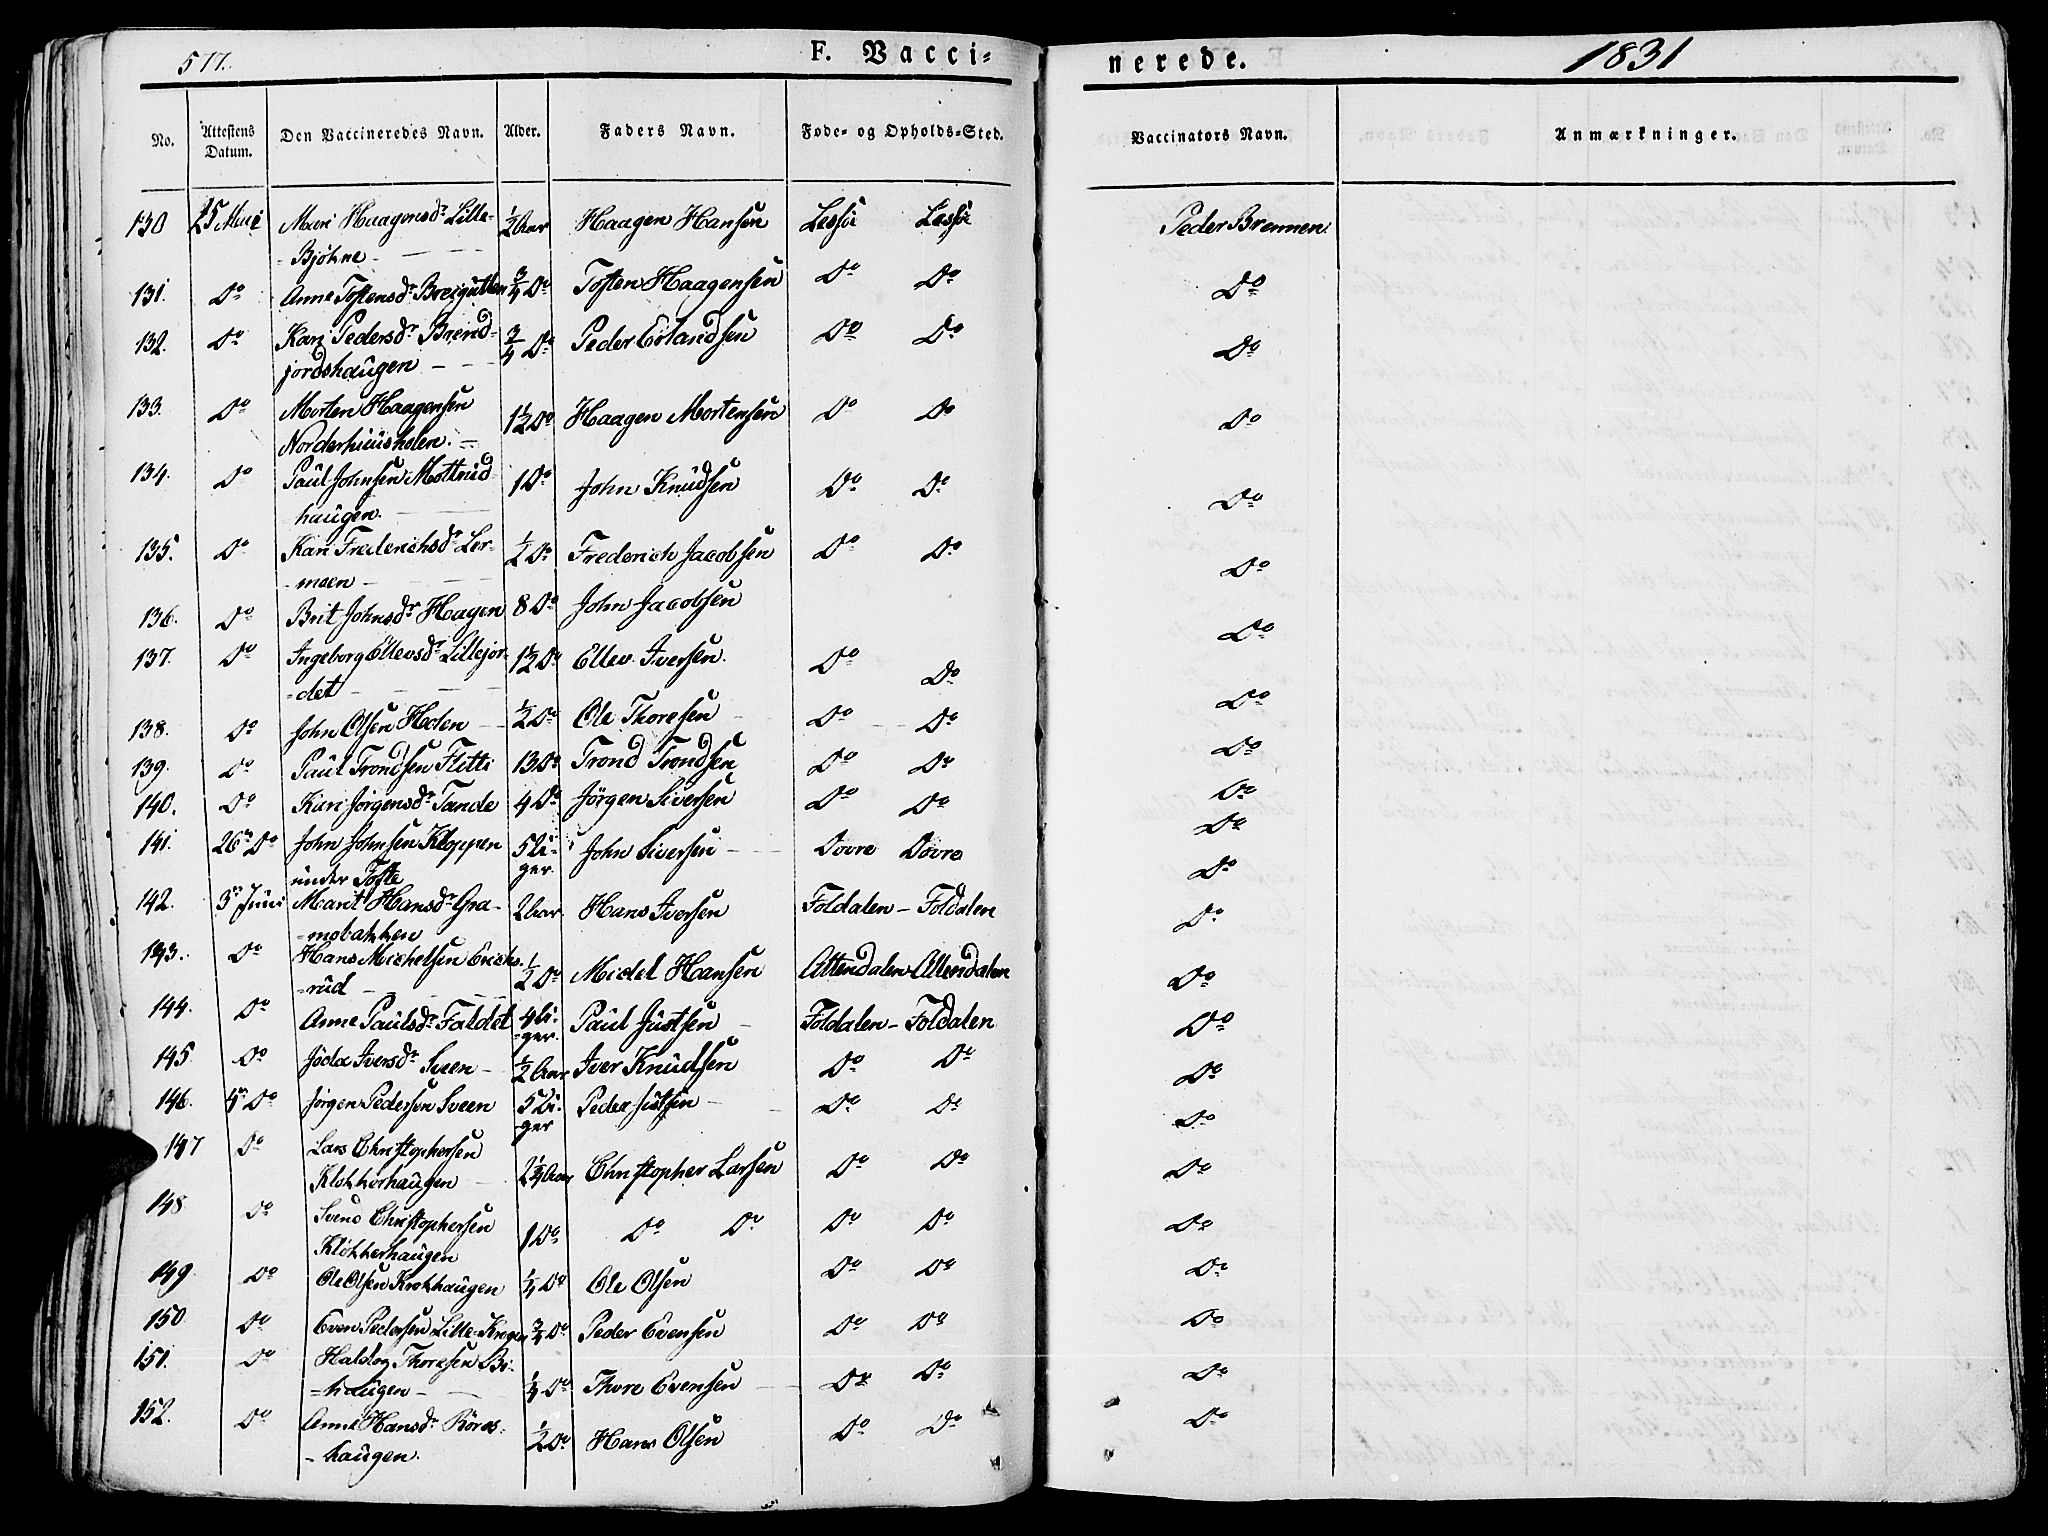 577.
F. Vacci-
nerede.
1831
No. Attestens Datum. Den Vaccineredes Navn. Alder. Faders Navn. Føde- og Opholds-Sted. Vaccinators Navn. Anmærkninger.
130 25 Mai Mari Haagensdr Lille- ½ Aar Haagen Hansen Lessøe Lessøe Peder Brennen.
-Bjøkne-
131. Do Anne Tostensdr Breigutten ¾ Do Tosten Haagensen Do Do Do
132. Do Kari Pedersdr Brend- ¾ Do Peder Erlandsen Do Do Do
jordshaugen
133. Do Morten Haagensen 1½ Do Haagen Mortensen Do Do Do
Norderhuusholen.
134. Do Paul Johnsen Mottrud- 1 Do John Knudsen Do Do Do
haugen.
135. Do Kari Frederichsdr Ler- ½ Do Frederich Jacobsen Do Do Do
-moen
136. Do Brit Johnsdr Haagen 8 Do John Jacobsen Do
137. Do Ingeborg Ellevsdr Lillejor- 1½ Do Ellev Iversen. Do Do Do
-det
138. Do John Olsen Holen ½ Do Ole Thoresen Do Do Do
139. Do Paul Trondsen Flitti 13 Do Trond Trondsen Do Do Do
140. Do Kari Jørgensdr Tande 4 Do Jörgen Siversen Do Do Do
141. 26 Do John Johnsen Kloppen 5 U- John Siversen Dovre Dovre Do
under Tofte ger.
142. 3 Juni Marit Hansdr Gra- 2 Aar Hans Iversen Foldalen - Foldalen Do
-mobakken
143. Do Hans Michelsen Erichs- ½ Do Michel Hansen Attendalen - Attendalen Do
-rud
144. Do Anne Paulsdr Faldet 4 U- Paul Justsen Foldalen - Foldalen Do
-ger.
145 Do Jøda Iversdr Sveen ½ Aar Iver Knudsen Do Do Do
146. 4 Do Jørgen Pedersen Sveen 5 U- Peder Justsen Do Do Do
-ger
147 Do Lars Christophersen 2¼ Aar Christopher Larsen Do Do Do
Klokkerhaugen
148 Do Svend Christophersen 1 Do Do Do Do Do Do
Klokkerhaugen
149 Do Ole Olsen Krokhaugen ¼ Do Ole Olsen Do Do Do
150 Do Even Pedersen Lille-Krogen ¾ Do Peder Evensen Do Do Do
151. Do Haldog Thoresen Bø- ¼ Do Thore Evensen Do Do Do
-haugen-
152. Do Anne Hansdr Röros- ½ Do Hans Olsen Do Do Do
-haugen.